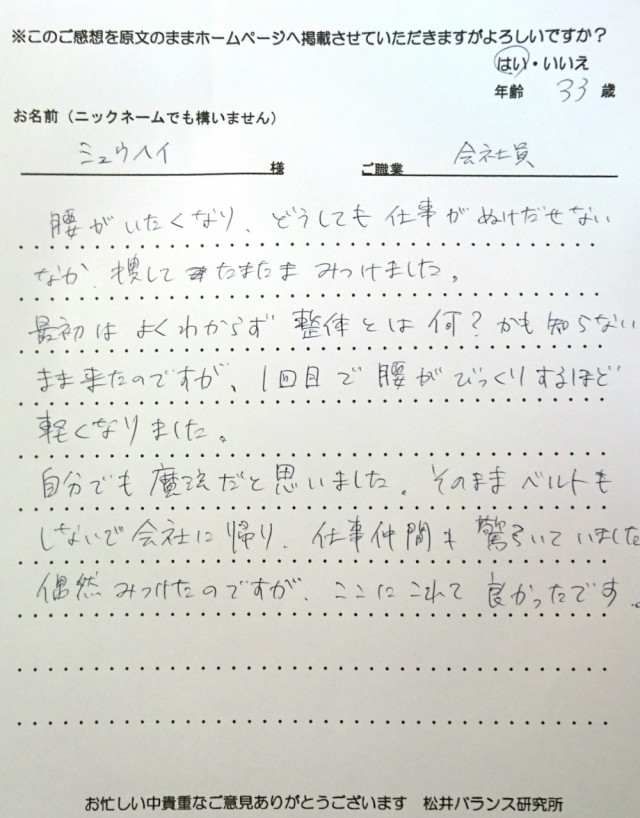 ※このご感想を原文のままホームページへ掲載させていただきますがよろしいですか？
はい・いいえ
年齢 33 歳
お名前（ニックネームでも構いません）
ミュウヘイ 様 ご職業 会社員
腰がいたくなり、どうしても仕事がぬけだせない
なか、捜してたまたまみつけました。
最初はよくわからず整体とは何？かも知らない
まま来たのですが、1回目で腰がびっくりするほど
軽くなりました。
自分でも魔法だと思いました。そのままベルトも
しないで会社に帰り、仕事仲間も驚いていました
偶然みつけたのですが、ここにこれて良かったです。
お忙しい中貴重なご意見ありがとうございます 松井バランス研究所